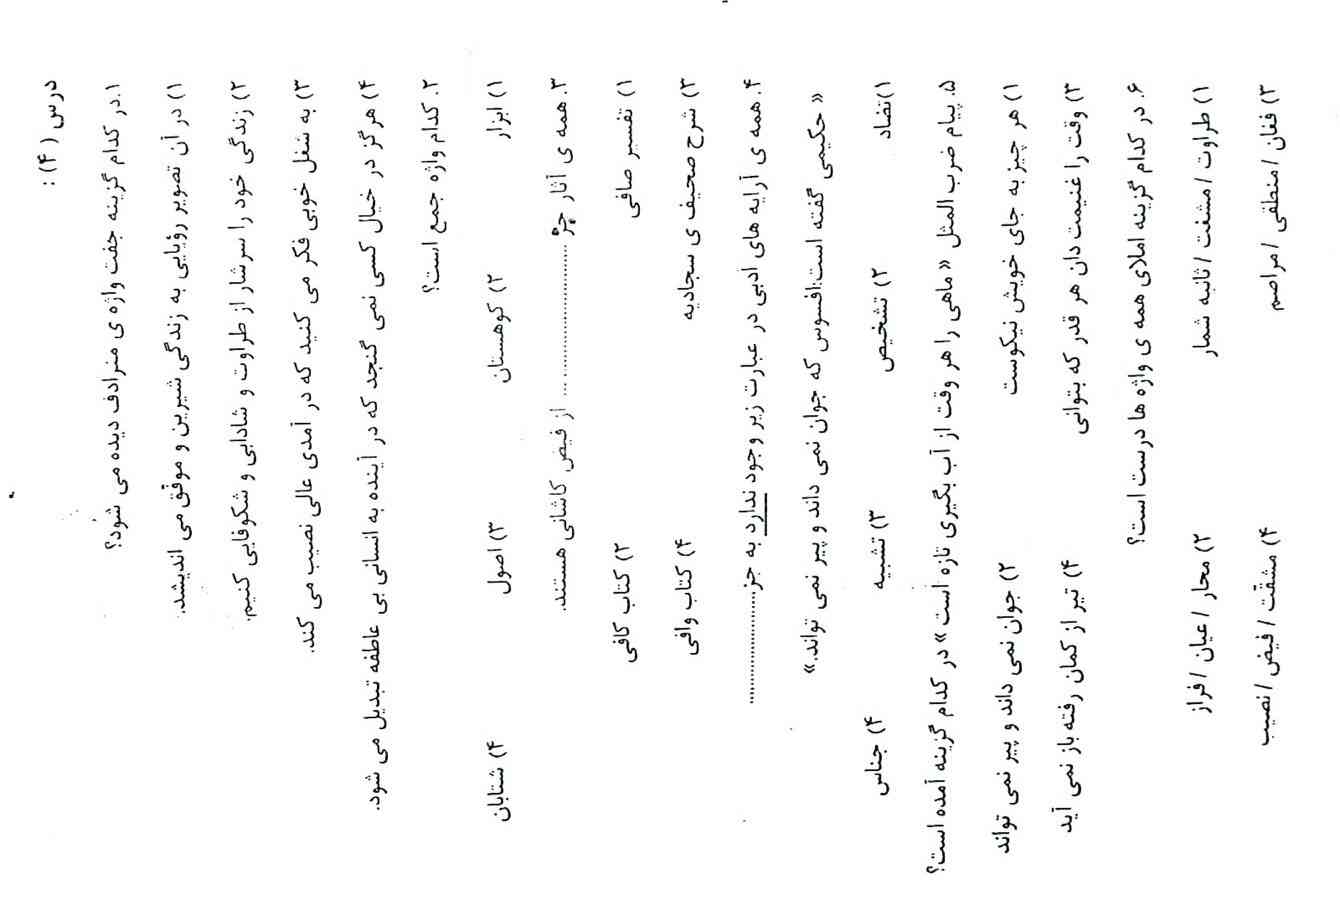 درس (۴) :
۱.در کدام گزینه جفت واژه ی مترادف دیده می شود؟
۱) در آن تصویر رؤیایی به زندگی شیرین و موفّق می اندیشد.
۲) زندگی خود را سرشار از طراوت و شادابی و شکوفایی کنیم.
۳) به شغل خوبی فکر می کنید که در آمدی عالی نصیب می کند.
۴) هرگز در خیال کسی نمی گنجد که در آینده به انسانی بی عاطفه تبدیل می شود.
۲. کدام واژه جمع است؟
۱) ابزار ۲) کوهستان ۳) اصول ۴) شتابان
۳. همه ی آثار جز .................... از فیض کاشانی هستند.
۱) تفسیر صافی ۲) کتاب کافی
۳) شرح صحیفه ی سجادیه ۴) کتاب وافی
۴. همه ی آرایه های ادبی در عبارت زیر وجود ندارد به جز....................
« حکیمی گفته است:افسوس که جوان نمی داند و پیر نمی تواند.»
۱)تضاد ۲) تشخیص ۳) تشبیه ۴) جناس
۵. پیام ضرب المثل « ماهی را هر وقت از آب بگیری تازه است » در کدام گزینه آمده است؟
۱) هر چیز به جای خویش نیکوست ۲) جوان نمی داند و پیر نمی تواند
۳) وقت را غنیمت دان هر قدر که بتوانی ۴) تیر از کمان رفته باز نمی آید
۶. در کدام گزینه املای همه ی واژه ها درست است؟
۱) طراوت / مشغت / ثانیه شمار ۲) محار / عیان / فراز
۳) فغان / منطقی / مراصم ۴) مشقّت / فیض / نصیب